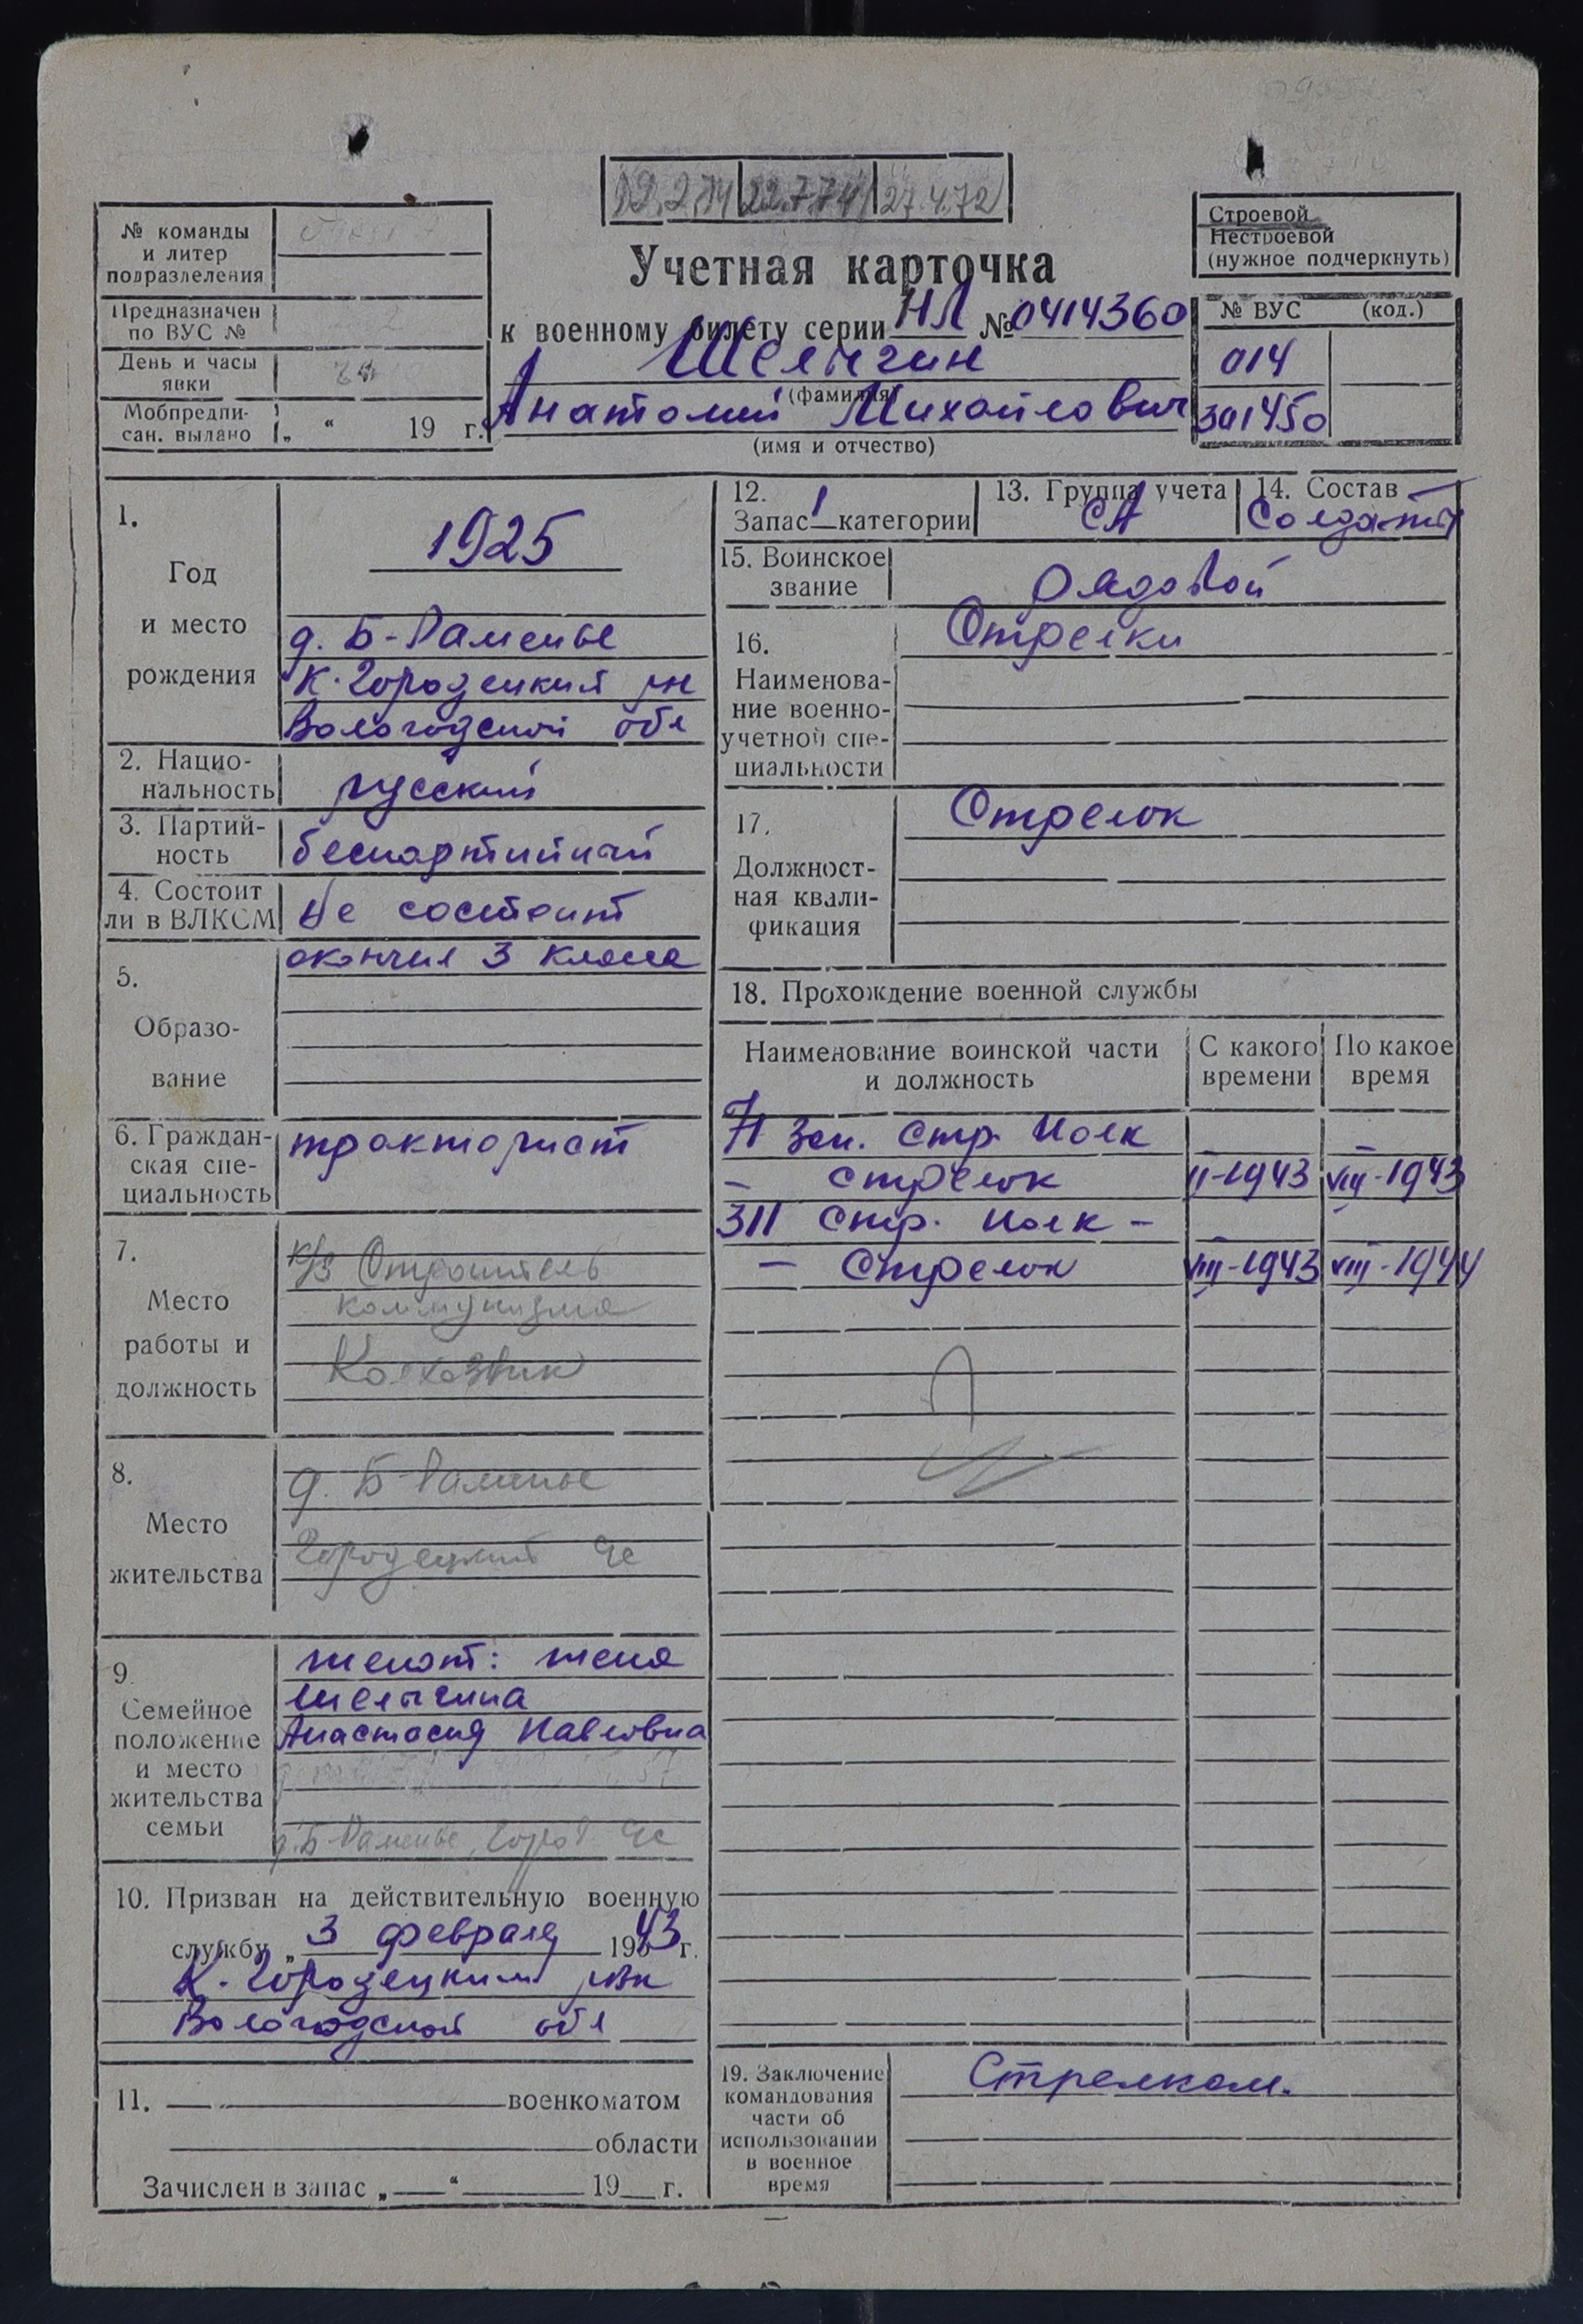 22.7.74 27.4.72
№ команды
и литер
подразделения
Предназначен
по ВУС №
День и часы
явки
Мобпредпи-
сан. выдано „ “ 19 г.
Учетная карточка
к военному билету серии НЛ № 0414360
Шелыгин
(фамилия)
Анатолий Михайлович
(имя и отчество)
Строевой
Нестроевой
(нужное подчеркнуть)
№ ВУС (код.)
014
301450
1.
Год
и место
рождения
1925
д. Б-Раменье
К-Городецкий рн
Вологодской обл
2. Нацио-
нальность
русский
3. Партий-
ность
беспартийный
4. Состоит
ли в ВЛКСМ
не состоит
5.
Образо-
вание
окончил 3 класса
6. Граждан-
ская спе-
циальность
тракторист
7.
Место
работы и
должность
к/з Строитель
коммунизма
Колхозник
8.
Место
жительства
д. Б-Раменье
Городецкий чс
9.
Семейное
положение
и место
жительства
семьи
женат: жена
Шелыгина
Анастасия Павловна
д. Б-Раменье, Город. чс
10. Призван на действительную военную
службу „ 3 февраля 1943 г.
К-Городецким рвк
Вологодской обл
11. военкоматом
области
Зачислен в запас „ “ 19 г.
12.
Запас 1 категории
13. Группа учета
СА
14. Состав
Солдаты
15. Воинское
звание
рядовой
16.
Наименова-
ние военно-
учетной спе-
циальности
Стрелки
17.
Должност-
ная квали-
фикация
Стрелок
18. Прохождение военной службы
Наименование воинской части
и должность
С какого
времени
По какое
время
71 зап. стр. полк
- стрелок II-1943 VIII-1943
311 стр. полк -
- стрелок VIII-1943 VIII-1944
19. Заключение
командования
части об
использовании
в военное
время
Стрелком.